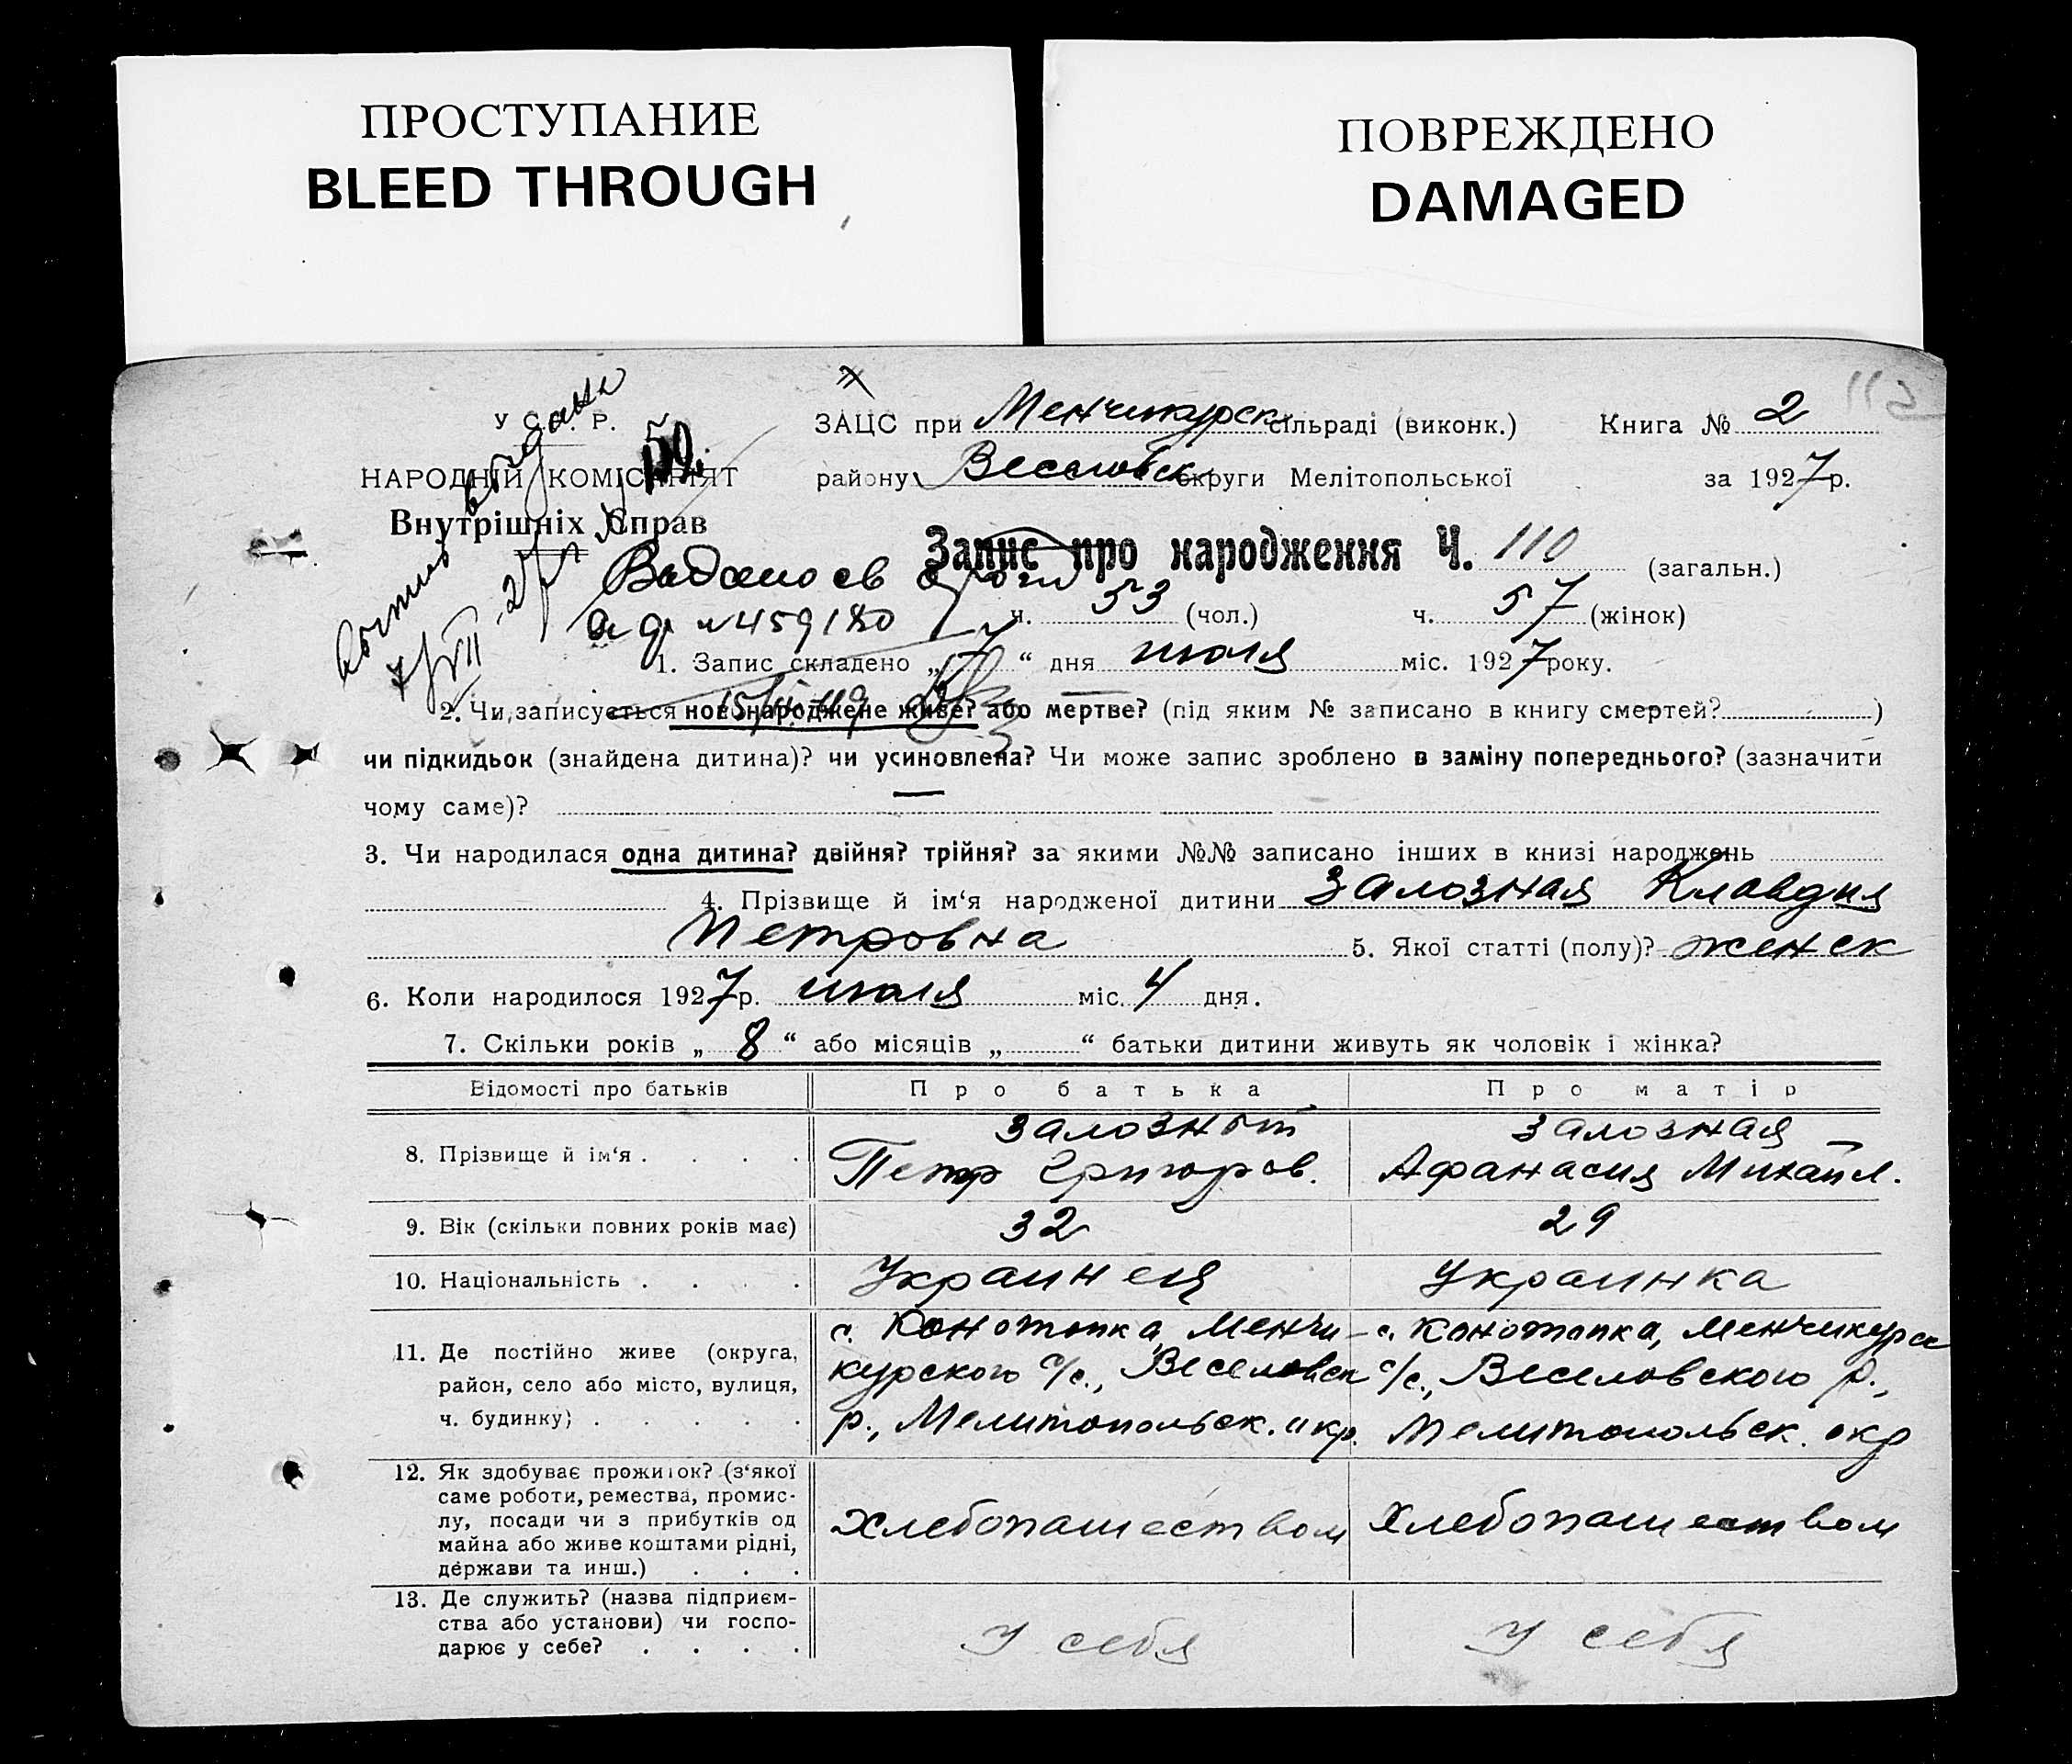 ПРОСТУПАНИЕ
BLEED THROUGH
ПОВРЕЖДЕНО
DAMAGED
112
У С. Р. Р.
НАРОДНІЙ КОМІСАРІЯТ
Внутрішніх Справ
ЗАЦС при Менчикурск сільраді (виконк.) Книга № 2
району Веселовск округи Мелітопольської за 1927 р.
Запис про народження Ч. 110 (загальн.)
Выдано св о рожд
№ 459180
ч. 53 (чол.) ч. 57 (жінок)
1. Запис складено „7“ дня июля міс. 1927 року.
2. Чи записується новонароджене живе? або мертве? (під яким № записано в книгу смертей? )
чи підкидьок (знайдена дитина)? чи усиновлена? Чи може запис зроблено в заміну попереднього? (зазначити
чому саме)?
3. Чи народилася одна дитина? двійня? трійня? за якими №№ записано інших в книзі народжень
4. Прізвище й ім‘я народженої дитини Залозная Клавдия
Петровна 5. Якої статті (полу)? женск
6. Коли народилося 1927 р. июля міс. 4 дня.
7. Скільки років „ 8 “ або місяців „ “ батьки дитини живуть як чоловік і жінка?
Відомості про батьків Про батька Про матір
8. Прізвище й ім‘я . . . . Залозный Петр Григоров. Залозная Афанасия Михайл.
9. Вік (скільки повних років має) 32 29
10. Національність . . . . Украинец Украинка
11. Де постійно живе (округа, с. Конотопка, Менчи- с. Конотопка, Менчикурск
район, село або місто, вулиця, курского с/с., Веселовск с/с., Веселовского р.,
ч. будинку) . . . . . р., Мелитопольск. окр. Мелитопольск. окр
12. Як здобуває прожиток? (з‘якої
саме роботи, ремества, промис-
лу, посади чи з прибутків од Хлебопашеством Хлебопашеством
майна або живе коштами рідні,
держави та инш.) . . .
13. Де служить? (назва підприєм-
ства або установи) чи госпо- У себя У себя
дарює у себе? . . . .